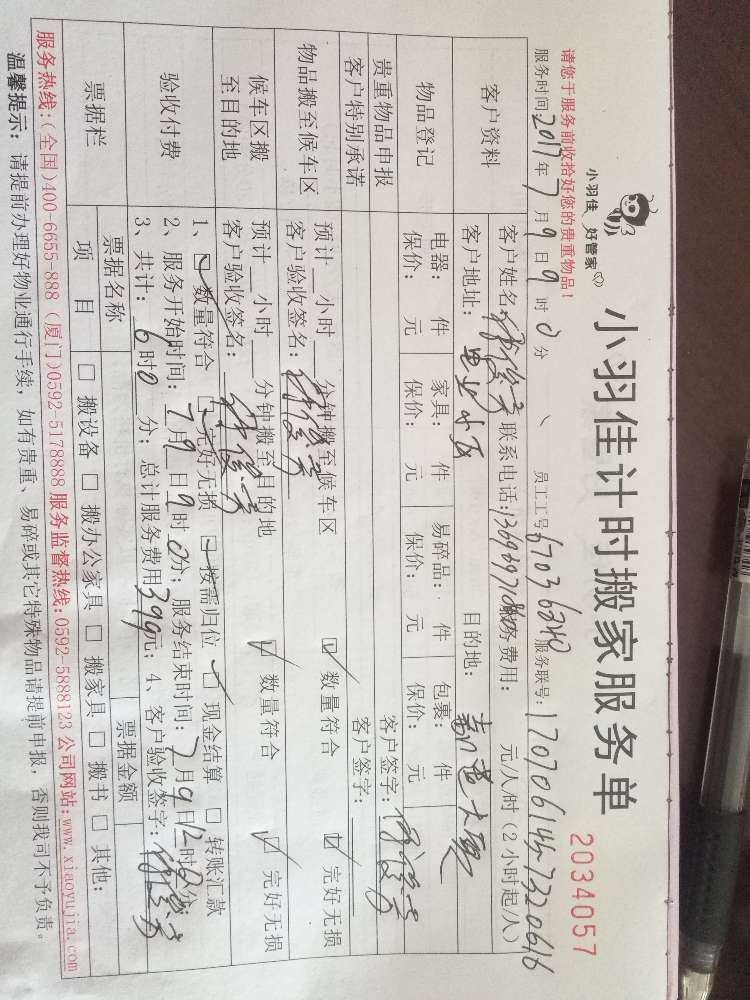 小羽佳 好管家
小羽佳计时搬家服务单
2034057
请您于服务前收拾好您的贵重物品！
服务时间2017年7月9日9时0分 员工工号67036840服务联号:
客户资料
客户姓名: 联系电话: 服务费用: 元/人/时(2小时起/人)
客户地址: 目的地:
物品登记
电器: 件 家具: 件 易碎品: 件 包裹: 件
保价: 元 保价: 元 保价: 元 保价: 元
贵重物品申报 客户签字:
客户特别承诺 客户签字:
物品搬至候车区
预计__小时__分钟搬至候车区
客户验收签名: ☑ 数量符合 ☑ 完好无损
候车区搬至目的地
预计__小时__分钟搬至目的地
客户验收签名: ☑ 数量符合 ☑ 完好无损
验收付费
1、☑ 数量符合 ☑ 完好无损 ☑ 按需归位 ☑ 现金结算 □ 转账汇款
2、服务开始时间: 7月9日9时0分; 服务结束时间: 7月9日12时0分
3、共计: 6时0分; 总计服务费用399元; 4、客户验收签字:
票据栏
票据名称 票据金额
项 目 □ 搬设备 □ 搬办公家具 □ 搬家具 □ 搬书 □ 其他:
服务热线:(全国)400-6655-888 (厦门)0592-5178888 服务监督热线:0592-5888123 公司网站:www.xiaoyujia.com
温馨提示: 请提前办理好物业通行手续，如有贵重、易碎或其它特殊物品请提前申报，否则我司不予负责。